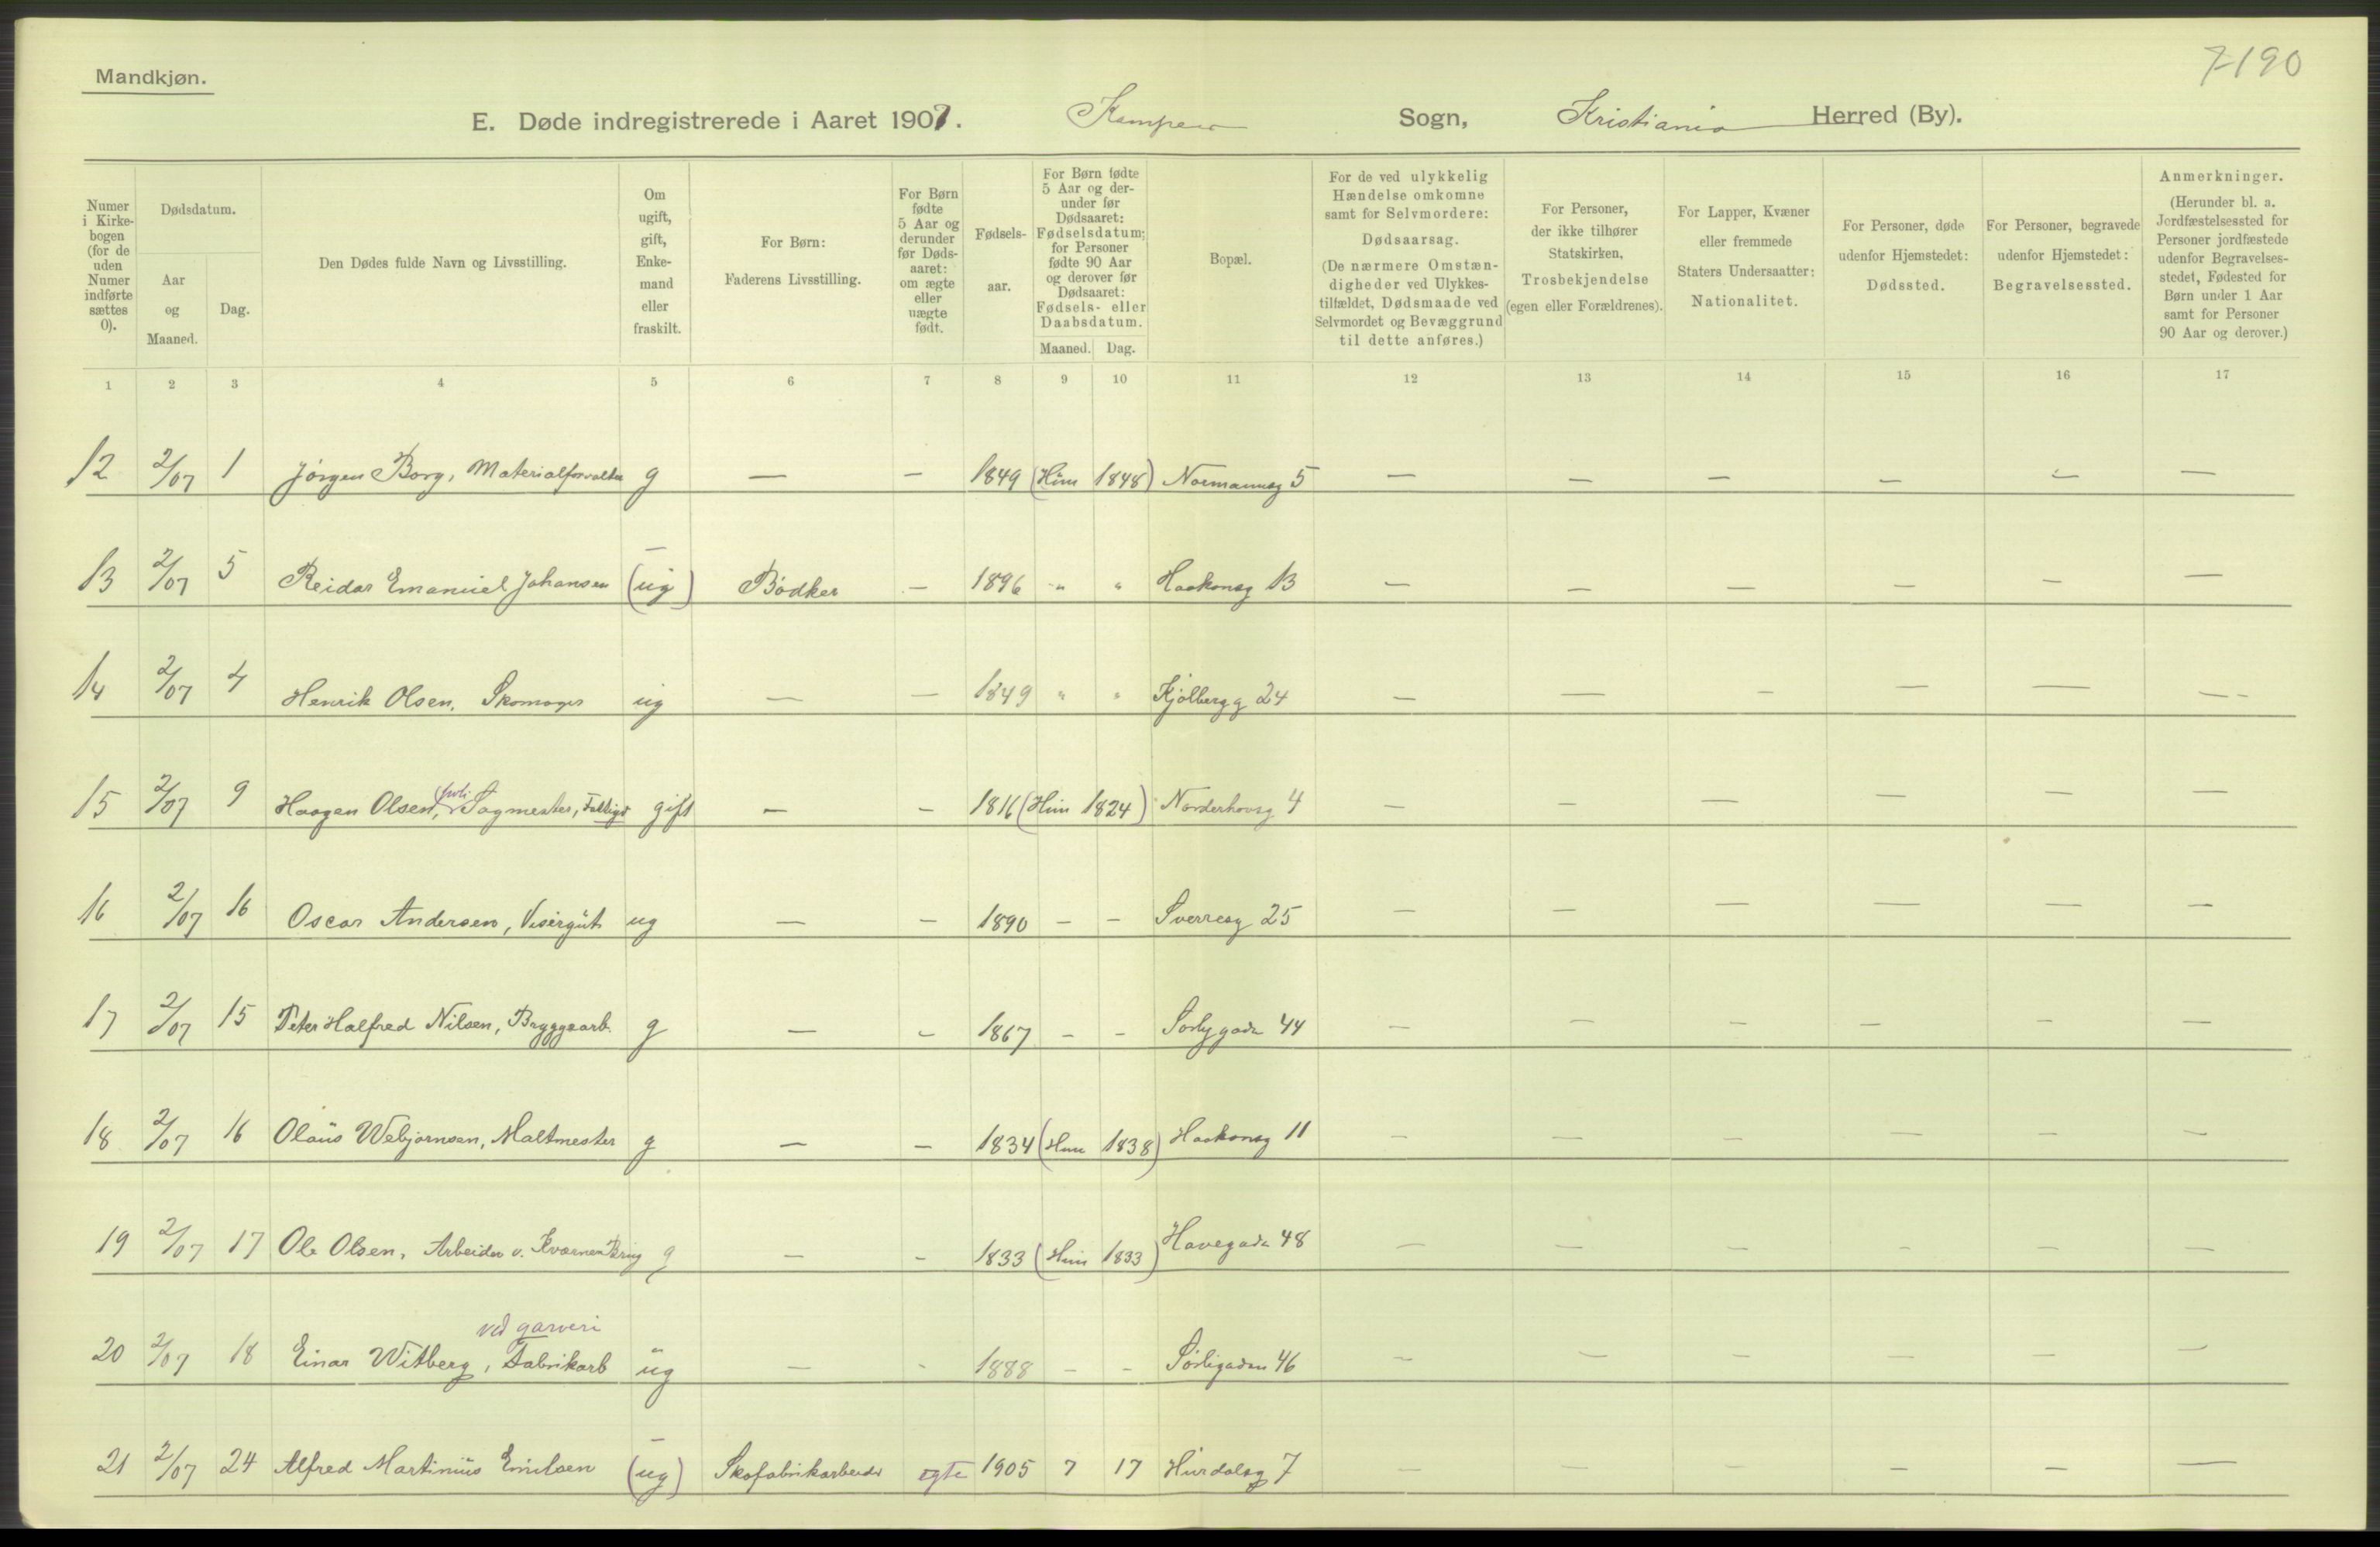 7-190
Mandkjøn.
E. Døde indregistrerede i Aaret 1907. Kampen Sogn, Kristiania Herred (By).
Numer i Kirke-bogen (for de uden Numer indførte sættes 0).
Dødsdatum.
Aar og Maaned.
Dag.
Den Dødes fulde Navn og Livsstilling.
Om ugift, gift, Enke-mand eller fraskilt.
For Børn: Faderens Livsstilling.
For Børn fødte 5 Aar og derunder før Døds-aaret: om ægte eller uægte født.
Fødsels-aar.
For Børn fødte 5 Aar og der-under før Dødsaaret: Fødselsdatum; for Personer fødte 90 Aar og derover før Dødsaaret: Fødsels- eller Daabsdatum.
Maaned. Dag.
Bopæl.
For de ved ulykkelig Hændelse omkomne samt for Selvmordere: Dødsaarsag. (De nærmere Omstæn-digheder ved Ulykkes-tilfældet, Dødsmaade ved Selvmordet og Bevæggrund til dette anføres.)
For Personer, der ikke tilhører Statskirken, Trosbekjendelse (egen eller Forældrenes).
For Lapper, Kvæner eller fremmede Staters Undersaatter: Nationalitet.
For Personer, døde udenfor Hjemstedet: Dødssted.
For Personer, begravede udenfor Hjemstedet: Begravelsessted.
Anmerkninger. (Herunder bl. a. Jordfæstelsessted for Personer jordfæstede udenfor Begravelses-stedet, Fødested for Børn under 1 Aar samt for Personer 90 Aar og derover.)
1 2 3 4 5 6 7 8 9 10 11 12 13 14 15 16 17
12 2/07 1 Jørgen Borg, Materialforvalter g — — 1849 (Hun 1848) Normannsg 5 — — — — — —
13 2/07 5 Reidar Emanuel Johansen (ug) Bødker — 1896 " " Haakonsg 13 — — — — — —
14 2/07 4 Henrik Olsen, Skomager ug — — 1849 " " Kjølbergg 24 — — — — — —
15 2/07 9 Haagen Olsen, Sagmester, Fattigd gift — — 1816 (Hun 1824) Norderhovsg 4 — — — — — —
16 2/07 16 Oscar Andersen, Visergut ug — — 1890 — — Sverresg 25 — — — — — —
17 2/07 15 Peter Halfred Nilsen, Bryggearb. g — — 1867 — — Sørlygade 44 — — — — — —
18 2/07 16 Olaus Webjørnsen, Maltmester g — — 1834 (Hun 1838) Haakonsg 11 — — — — — —
19 2/07 17 Ole Olsen, Arbeider v. Kværner Brug g — — 1833 (Hun 1833) Havegade 48 — — — — — —
ved garveri
20 2/07 18 Einar Witberg, Fabrikarb ug — - 1888 — — Sørligaden 46 — — — — — —
21 2/07 24 Alfred Martinius Emilsen (ug) Skofabrikarbeider egte 1905 7 17 Hurdalsg 7 — — — — — —